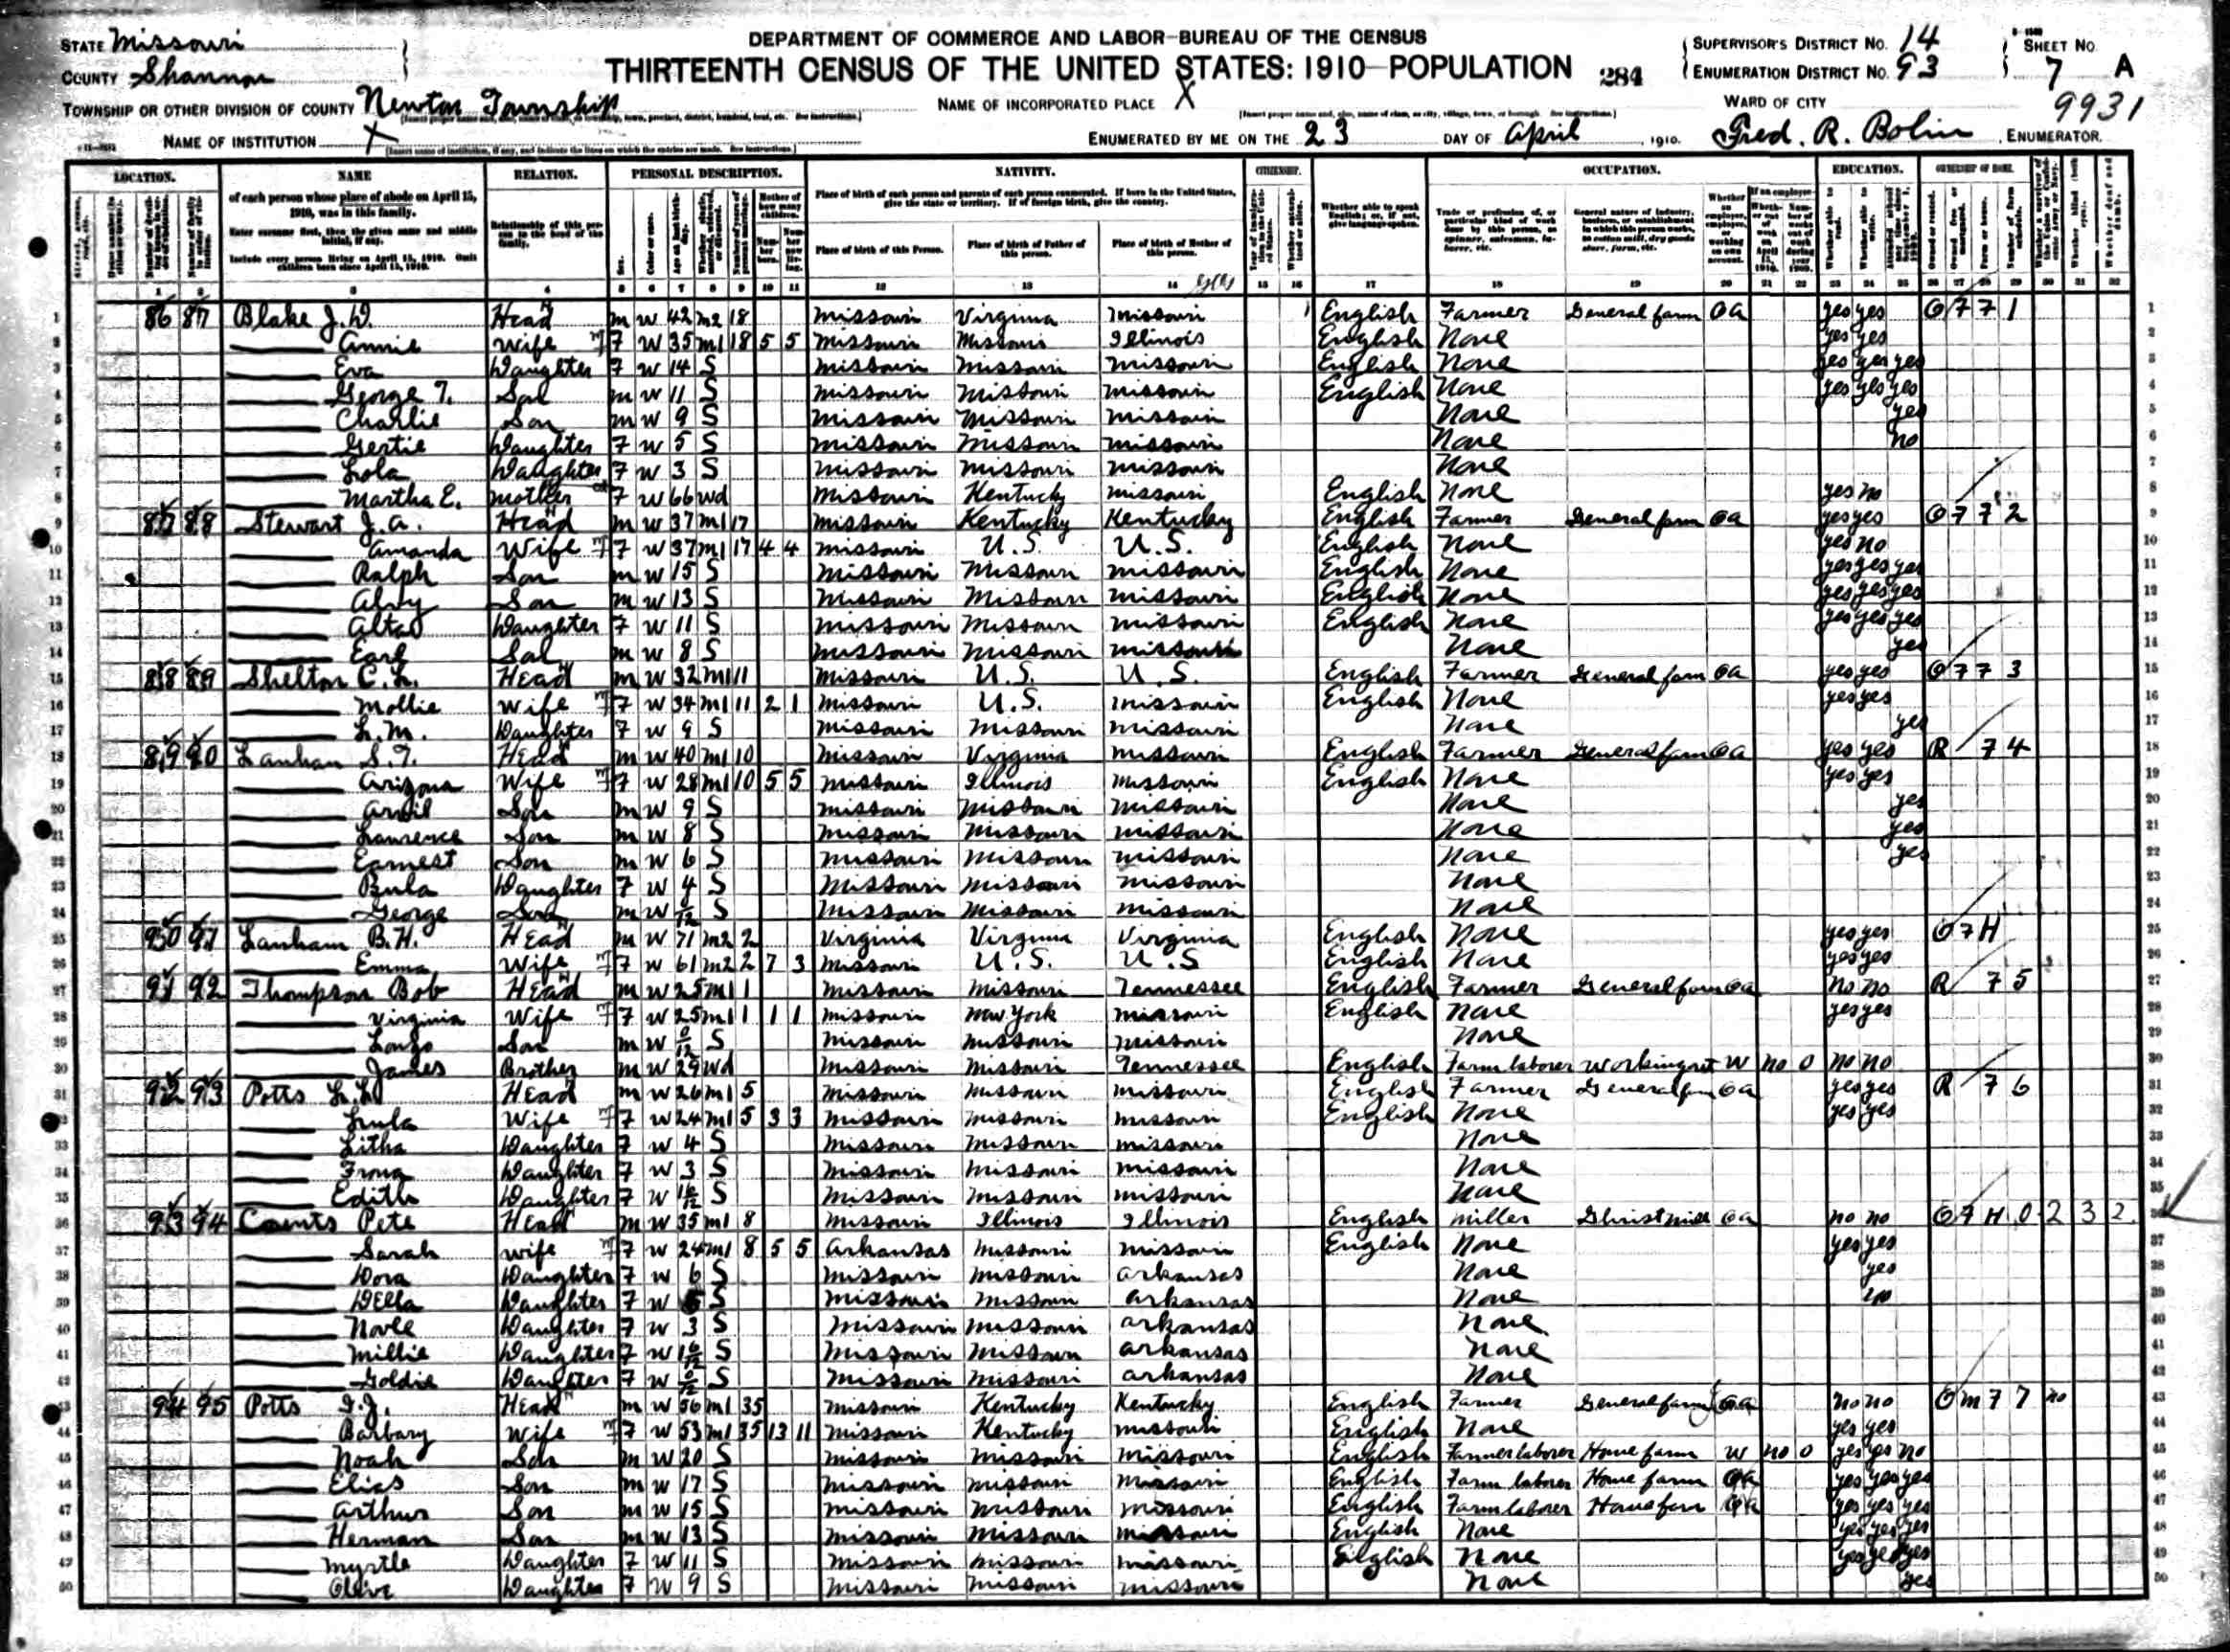 DEPARTMENT OF COMMERCE AND LABOR-BUREAU OF THE CENSUS
THIRTEENTH CENSUS OF THE UNITED STATES: 1910-POPULATION
284
STATE Missouri
COUNTY Shannon
TOWNSHIP OR OTHER DIVISION OF COUNTY Newton Township
NAME OF INSTITUTION X
NAME OF INCORPORATED PLACE X
ENUMERATED BY ME ON THE 23 DAY OF April, 1910.
SUPERVISOR'S DISTRICT No. 14
ENUMERATION DISTRICT No. 93
SHEET No. 7 A
WARD OF CITY
9931
Fred. R. Bolin, ENUMERATOR.
LOCATION. NAME RELATION. PERSONAL DESCRIPTION. NATIVITY. CITIZENSHIP. OCCUPATION. EDUCATION. OWNERSHIP OF HOME.
of each person whose place of abode on April 15, 1910, was in this family.
Enter surname first, then the given name and middle initial, if any.
Include every person living on April 15, 1910. Omit children born since April 15, 1910.
Relationship of this person to the head of the family.
Place of birth of each person and parents of each person enumerated. If born in the United States, give the state or territory. If of foreign birth, give the country.
Place of birth of this Person. Place of birth of Father of this person. Place of birth of Mother of this person.
Whether able to speak English; or, if not, give language spoken.
1 86 87 Blake J. D. Head m w 42 m2 18 Missouri Virginia Missouri English Farmer General farm OA yes yes O 7 7 1
2 Annie Wife F w 35 m1 18 5 5 Missouri Missouri Illinois English None yes yes
3 Eva Daughter F w 14 S Missouri Missouri Missouri English None yes yes yes
4 George T. Son m w 11 S Missouri Missouri Missouri English None yes yes yes
5 Charlie Son m w 9 S Missouri Missouri Missouri None yes
6 Gertie Daughter F w 5 S Missouri Missouri Missouri None no
7 Lola Daughter F w 3 S Missouri Missouri Missouri None
8 Martha E. Mother F w 66 wd Missouri Kentucky Missouri English None yes no
9 87 88 Stewart J. A. Head m w 37 m1 17 Missouri Kentucky Kentucky English Farmer General farm OA yes yes O 7 7 2
10 Amanda Wife F w 37 m1 17 4 4 Missouri U.S. U.S. English None yes no
11 Ralph Son m w 15 S Missouri Missouri Missouri English None yes yes yes
12 Alvy Son m w 13 S Missouri Missouri Missouri English None yes yes yes
13 Alta Daughter F w 11 S Missouri Missouri Missouri English None yes yes yes
14 Earl Son m w 8 S Missouri Missouri Missouri None yes
15 88 89 Shelton C. L. Head m w 32 m1 11 Missouri U.S. U.S. English Farmer General farm OA yes yes O 7 7 3
16 Mollie Wife F w 34 m1 11 2 1 Missouri U.S. Missouri English None yes yes
17 L. M. Daughter F w 9 S Missouri Missouri Missouri None yes
18 89 90 Lanham S. T. Head m w 40 m1 10 Missouri Virginia Missouri English Farmer General farm OA yes yes R 7 4
19 Arizona Wife F w 28 m1 10 5 5 Missouri Illinois Missouri English None yes yes
20 Arvil Son m w 9 S Missouri Missouri Missouri None yes
21 Lawrence Son m w 8 S Missouri Missouri Missouri None yes
22 Earnest Son m w 6 S Missouri Missouri Missouri None yes
23 Bula Daughter F w 4 S Missouri Missouri Missouri None
24 George Son m w S Missouri Missouri Missouri None
25 90 91 Lanham B. H. Head m w 71 m2 2 Virginia Virginia Virginia English None yes yes O 7 H
26 Emma Wife F w 61 m2 2 7 3 Missouri U.S. U.S English None yes yes
27 91 92 Thompson Bob Head m w 25 m1 1 Missouri Missouri Tennessee English Farmer General farm OA no no R 7 5
28 Virginia Wife F w 25 m1 1 1 1 Missouri New York Missouri English None yes yes
29 Lonzo Son m w 0/12 S Missouri Missouri Missouri None
30 James Brother m w 29 wd Missouri Missouri Tennessee English Farm laborer Working out W no 0 no no
31 92 93 Potts L. L. Head m w 26 m1 5 Missouri Missouri Missouri English Farmer General farm OA yes yes R 7 6
32 Lula Wife F w 24 m1 5 3 3 Missouri Missouri Missouri English None yes yes
33 Litha Daughter F w 4 S Missouri Missouri Missouri None
34 Daughter F w 3 S Missouri Missouri Missouri None
35 Edith Daughter F w S Missouri Missouri Missouri None
36 93 94 Counts Pete Head m w 35 m1 8 Missouri Illinois Illinois English Miller Ghrist mill OA no no O 7 H 0 2 3 2
37 Sarah Wife F w 24 m1 8 5 5 Arkansas Missouri Missouri English None yes yes
38 Dora Daughter F w 6 S Missouri Missouri Arkansas None yes
39 Della Daughter F w 5 S Missouri Missouri Arkansas None no
40 Novle Daughter F w 3 S Missouri Missouri Arkansas None
41 Millie Daughter F w 1 6/12 S Missouri Missouri Arkansas None
42 Goldie Daughter F w 0/12 S Missouri Missouri Arkansas None
43 94 95 Potts Head m w 56 m1 35 Missouri Kentucky Kentucky English Farmer General farm OA no no O m 7 7 no
44 Barbary Wife F w 53 m1 35 13 11 Missouri Kentucky Missouri English None yes yes
45 Noah Son m w 20 S Missouri Missouri Missouri English Farmer laborer Home farm W no 0 yes yes no
46 Elias Son m w 17 S Missouri Missouri Missouri English Farm laborer Home farm yes yes yes
47 Arthur Son m w 15 S Missouri Missouri Missouri English Farm laborer Home farm yes yes yes
48 Herman Son m w 13 S Missouri Missouri Missouri English None yes yes yes
49 Myrtle Daughter F w 11 S Missouri Missouri Missouri English None yes yes yes
50 Olive Daughter F w 9 S Missouri Missouri Missouri None yes